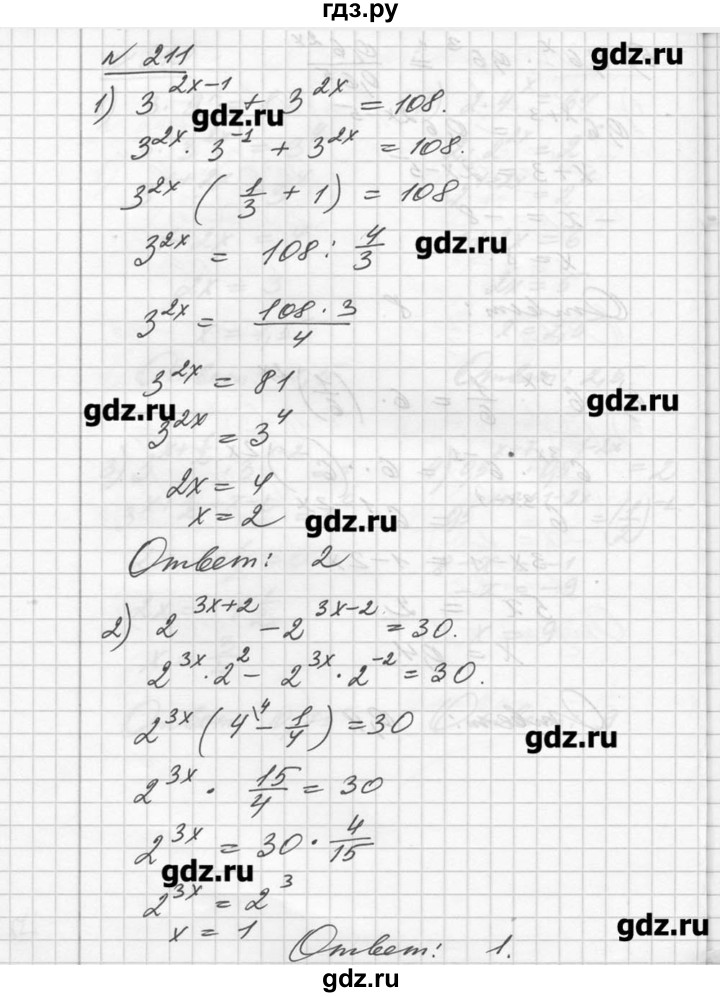 гдз.ру
gdz.ru
№ 211
1) 3^{2x-1} + 3^{2x} = 108.
gdz.ru
3^{2x} · 3^{-1} + 3^{2x} = 108.
3^{2x} ( 1/3 + 1 ) = 108
3^{2x} = 108 : 4/3
gdz.ru
3^{2x} = (108 · 3)/4
3^{2x} = 81
gdz.ru
gdz.ru
3^{2x} = 3^4
2x = 4
x = 2
gdz.ru
Ответ: 2
2) 2^{3x+2} - 2^{3x-2} = 30.
2^{3x} · 2^2 - 2^{3x} · 2^{-2} = 30.
2^{3x} ( 4^{\4} - 1/4 ) = 30
gdz.ru
2^{3x} · 15/4 = 30
2^{3x} = 30 · 4/15
gdz.ru
2^{3x} = 2^3
x = 1
gdz.ru
Ответ: 1.
gdz.ru